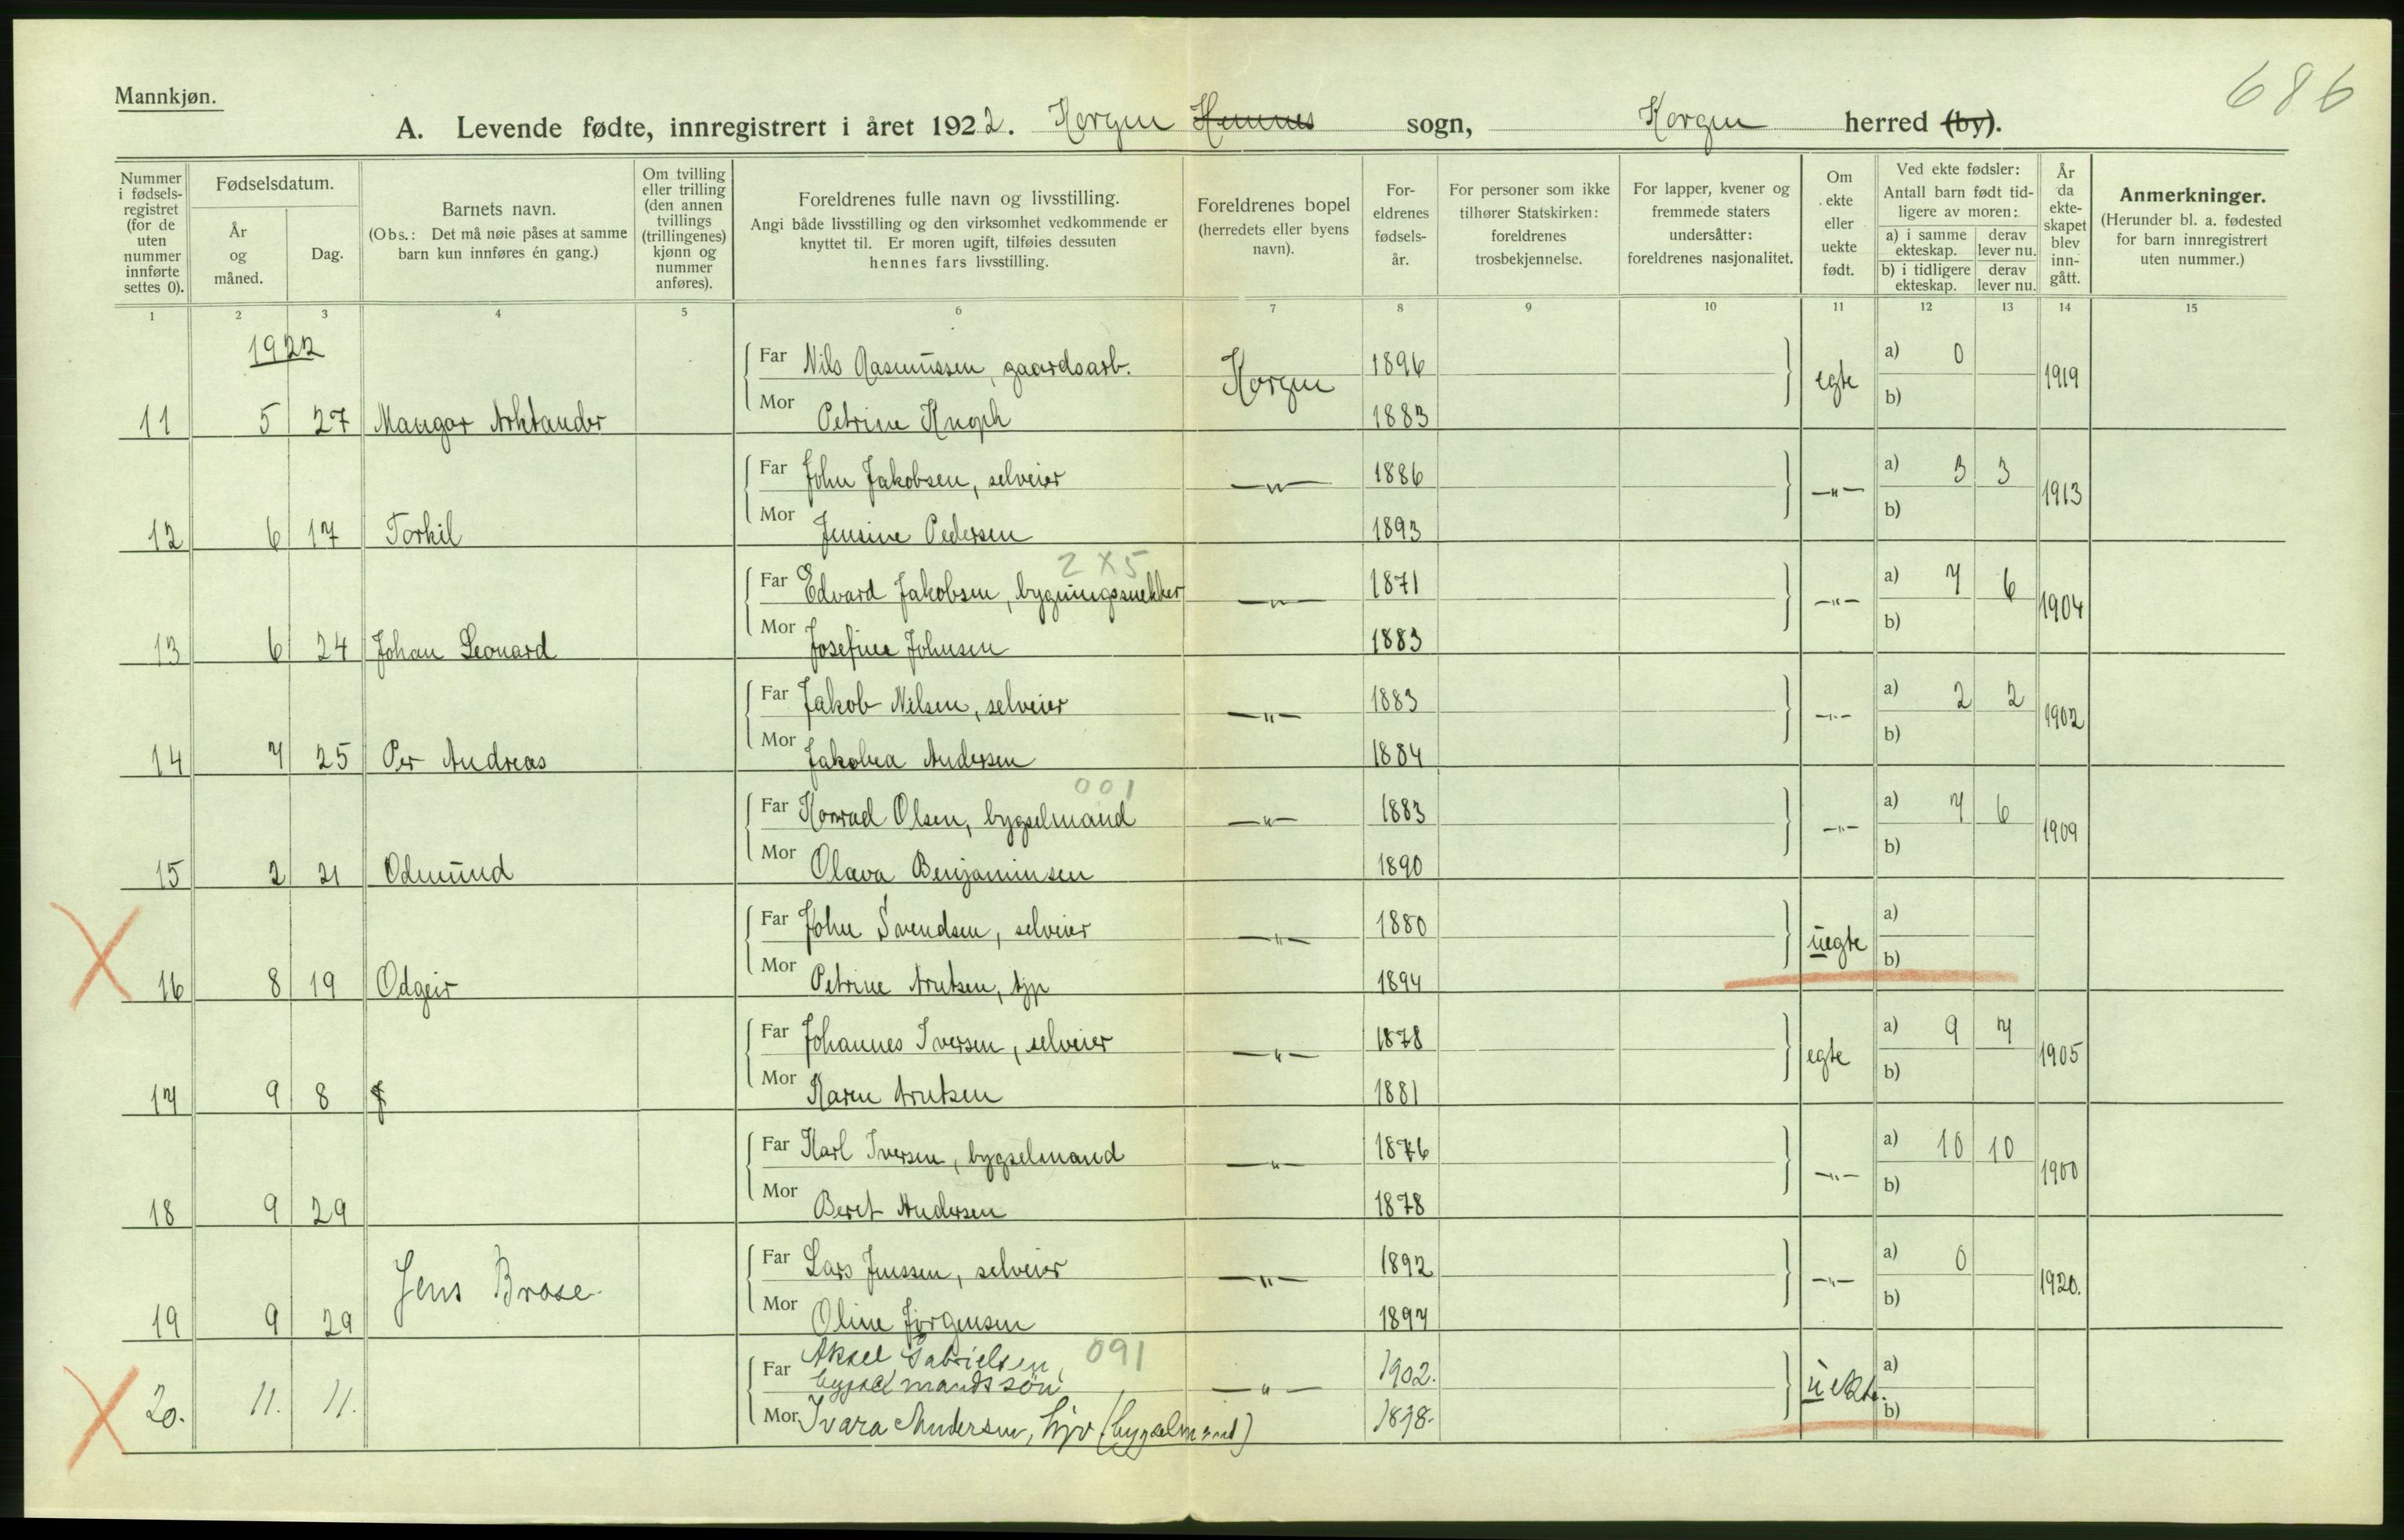 686
Mannkjøn.
A. Levende fødte, innregistrert i året 1922. Korgen Hemnes sogn, Korgen herred (by).
Nummer i fødsels-registret (for de uten nummer innførte settes 0).
Fødselsdatum.
År og måned.
Dag.
Barnets navn.
(Obs.: Det må nøie påses at samme barn kun innføres én gang.)
Om tvilling eller trilling (den annen tvillings (trillingenes) kjønn og nummer anføres).
Foreldrenes fulle navn og livsstilling.
Angi både livsstilling og den virksomhet vedkommende er knyttet til. Er moren ugift, tilføies dessuten hennes fars livsstilling.
Foreldrenes bopel (herredets eller byens navn).
For-eldrenes fødsels-år.
For personer som ikke tilhører Statskirken: foreldrenes trosbekjennelse.
For lapper, kvener og fremmede staters undersåtter: foreldrenes nasjonalitet.
Om ekte eller uekte født.
Ved ekte fødsler: Antall barn født tid-ligere av moren:
a) i samme ekteskap.
derav lever nu.
b) i tidligere ekteskap.
derav lever nu.
År da ekte-skapet blev inn-gått.
Anmerkninger.
(Herunder bl. a. fødested for barn innregistrert uten nummer.)
1 2 3 4 5 6 7 8 9 10 11 12 13 14 15
1922
Far Nils Rasmussen, gaardsarb. Korgen 1896 egte a) 0 1919
11 5 27 Mangor Arktander Mor Petrine Knoph 1883 b)
Far John Jakobsen, selveier —"— 1886 —"— a) 3 3 1913
12 6 17 Torkil Mor Jensine Pedersen 1893 b)
2 X 5
Far Edvard Jakobsen, bygningssnekker —"— 1871 —"— a) 7 6 1904
13 6 24 Johan Leonard Mor Josefine Johnsen 1883 b)
Far Jakob Nilsen, selveier —"— 1883 —"— a) 2 2 1902
14 7 25 Per Andreas Mor Jakobea Andersen 1884 b)
001
Far Konrad Olsen, bygselmand —"— 1883 —"— a) 7 6 1909
15 2 21 Odmund Mor Olava Benjaminsen 1890 b)
Far John Svendsen, selveier —"— 1880 uegte a)
16 8 19 Odgeir Mor Petrine Arntsen, tjp 1894 b)
Far Johannes Iversen, selveier —"— 1878 egte a) 9 7 1905
17 9 8 Mor Karen Arntsen 1881 b)
Far Karl Iversen, bygselmand —"— 1876 —"— a) 10 10 1900
18 9 29 Mor Beret Andersen 1878 b)
Far Lars Jenssen, selveier —"— 1892 —"— a) 0 1920.
19 9 29 Jens Brose Mor Oline Jørgensen 1897 b)
Aksel Gabrielsen, 091
Far bygselmandssøn —"— 1902. uekte. a)
20. 11. 11. Mor Ivara Andersen, (bygselmand) 1898. b)